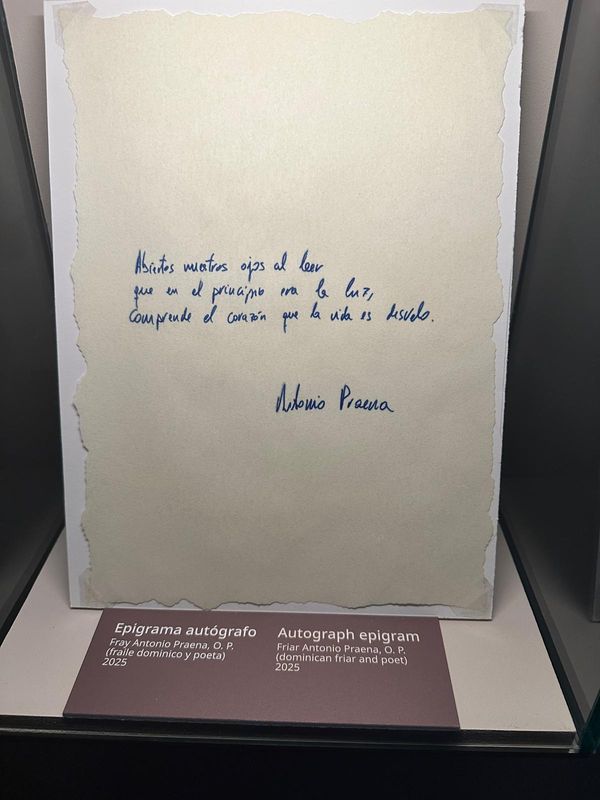 Abiertos nuestros ojos al leer
que en el principio era la luz,
comprende el corazón que la vida es desvelo.
Antonio Praena
Epigrama autógrafo
Fray Antonio Praena, O. P.
(fraile dominico y poeta)
2025
Autograph epigram
Friar Antonio Praena, O. P.
(dominican friar and poet)
2025